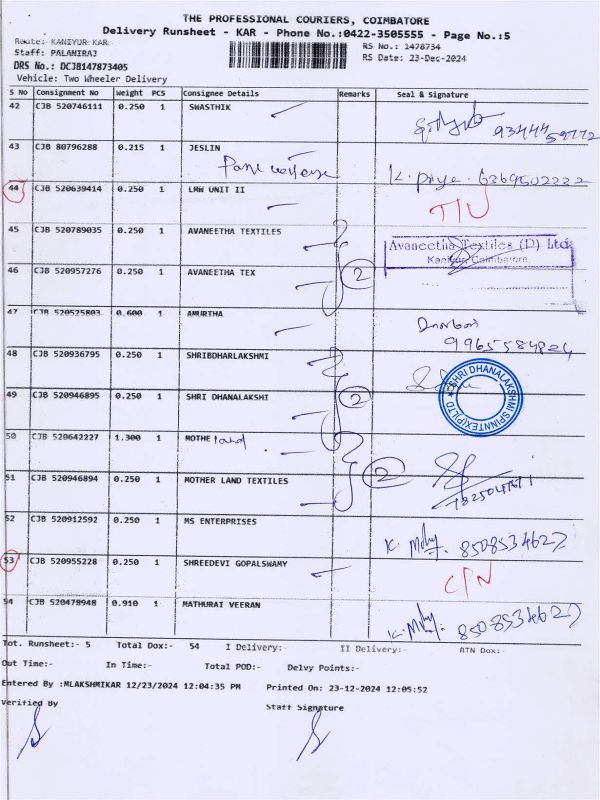 THE PROFESSIONAL COURIERS, COIMBATORE
Delivery Runsheet - KAR - Phone No.:0422-3505555 - Page No.:5
Route:- KANIYUR KAR
RS No.: 1478734
Staff: PALANIRAJ
RS Date: 23-Dec-2024
DRS No.: DCJB147873405
Vehicle: Two Wheeler Delivery
S No Consignment No Weight PCS Consignee Details Remarks Seal & Signature
42 CJB 520746111 0.250 1 SWASTHIK
43 CJB 80796288 0.215 1 JESLIN
K. priya. 6369502222
44 CJB 520639414 0.250 1 LMW UNIT II
T/U
45 CJB 520789035 0.250 1 AVANEETHA TEXTILES
Avaneetha Textiles (P) Ltd
Kaniyur, Coimbatore
46 CJB 520957276 0.250 1 AVANEETHA TEX 2
47 CJB 520525803 0.600 1 AMURTHA
9965584824
48 CJB 520936795 0.250 1 SHRIBDHARLAKSHMI
49 CJB 520946895 0.250 1 SHRI DHANALAKSHI 2
SHRI DHANALAKSHMI SPINNTEX(P)LTD
50 CJB 520642227 1.300 1 MOTHE rland
51 CJB 520946894 0.250 1 MOTHER LAND TEXTILES 2
52 CJB 520912592 0.250 1 MS ENTERPRISES
8508534627
53 CJB 520955228 0.250 1 SHREEDEVI GOPALSWAMY
54 CJB 520478948 0.910 1 MATHURAI VEERAN
8508534627
Tot. Runsheet:- 5 Total Dox:- 54 I Delivery:- II Delivery:- RTN Dox:-
Out Time:- In Time:- Total POD:- Delvy Points:-
Entered By :MLAKSHMIKAR 12/23/2024 12:04:35 PM Printed On: 23-12-2024 12:05:52
Verified By Staff Signature